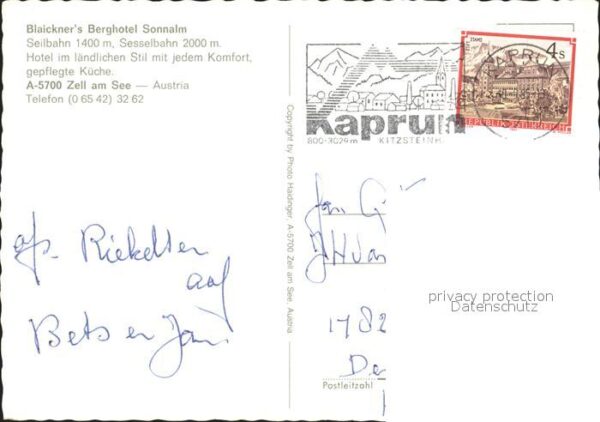 Blaickner's Berghotel Sonnalm
Seilbahn 1400 m, Sesselbahn 2000 m.
Hotel im ländlichen Stil mit jedem Komfort,
gepflegte Küche.
A-5700 Zell am See — Austria
Telefon (0 65 42) 32 62
Kaprun
800-3029 m KITZSTEINH
4 S
KAPRUN
REPUBLIK ÖSTERREICH
Copyright by Photo Haidinger, A-5700 Zell am See, Austria
afz. Riekelten
aaf
Bets en Jan.
Jan G
1782
De
Postleitzahl
privacy protection
Datenschutz